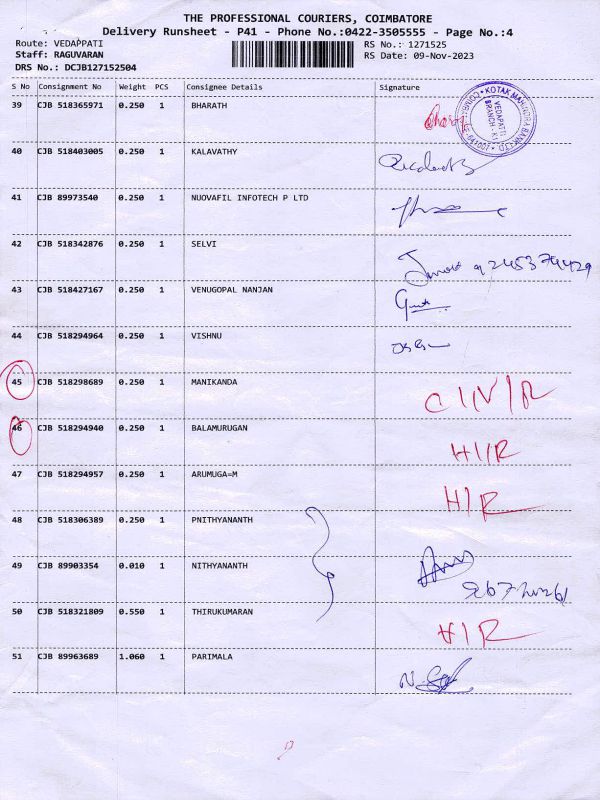 THE PROFESSIONAL COURIERS, COIMBATORE
Delivery Runsheet - P41 - Phone No.:0422-3505555 - Page No.:4
Route: VEDAPPATI RS No.: 1271525
Staff: RAGUVARAN RS Date: 09-Nov-2023
DRS No.: DCJB127152504
S No Consignment No Weight PCS Consignee Details Signature
39 CJB 518365971 0.250 1 BHARATH
KOTAK MAHINDRA BANK LTD
VEDAPATTI
BRANCH - K1
641007
40 CJB 518403005 0.250 1 KALAVATHY
41 CJB 89973540 0.250 1 NUOVAFIL INFOTECH P LTD
42 CJB 518342876 0.250 1 SELVI
43 CJB 518427167 0.250 1 VENUGOPAL NANJAN
44 CJB 518294964 0.250 1 VISHNU
45 CJB 518298689 0.250 1 MANIKANDA
46 CJB 518294940 0.250 1 BALAMURUGAN H/R
47 CJB 518294957 0.250 1 ARUMUGA=M H/R
48 CJB 518306389 0.250 1 PNITHYANANTH
49 CJB 89903354 0.010 1 NITHYANANTH
50 CJB 518321809 0.550 1 THIRUKUMARAN H/R
51 CJB 89963689 1.060 1 PARIMALA